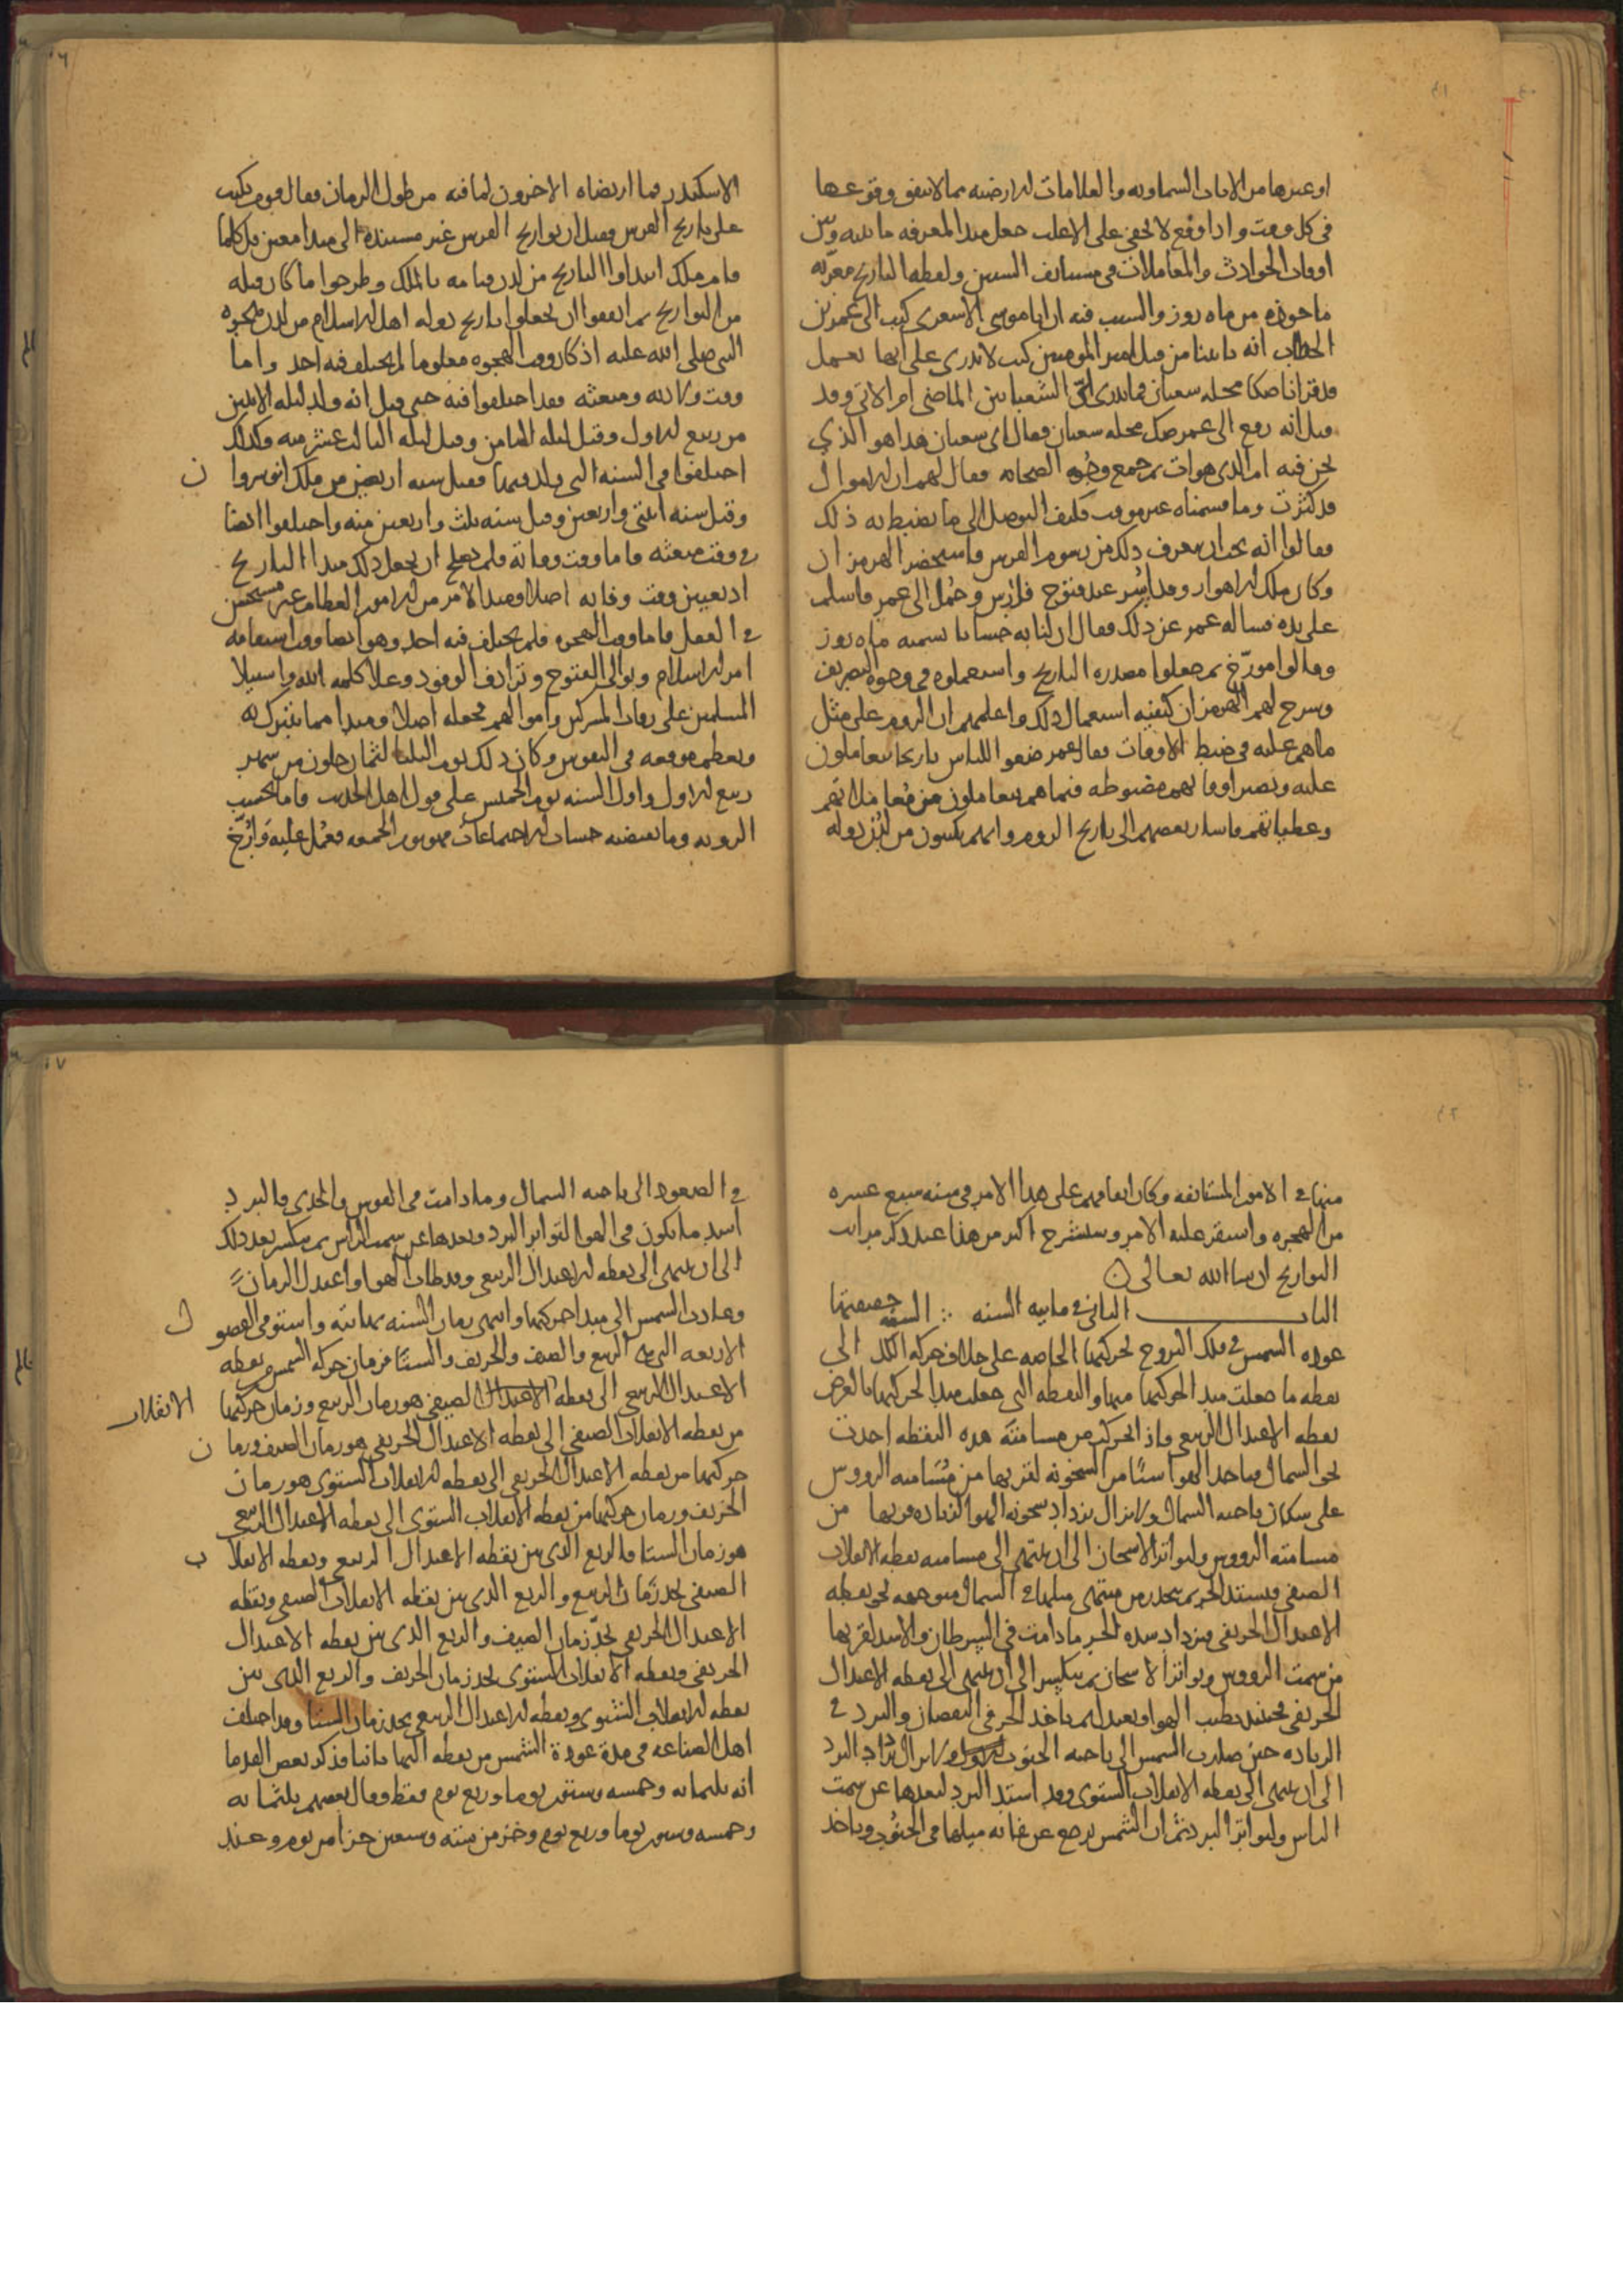 او غيرها من الايات السماويه والعلامات الارضيه مما لا يتفق وقوعها
فى كل وقت واذا وقع لا يخفى على الاغلب جعل مبدا لمعرفه ما بينه وبين
اوقات الحوادث والمعاملات فى مستانف السنين ولفظه التاريخ معربه
ماخوذه من ماه روز والسبب فيه ان ابا موسى الاشعرى كتب الى عمر بن
الخطاب انه ياتينا من قبل امير المومنين كتب لا ندرى على ايها نعمل
قد قرانا صكا محله شعبان فما ندرى اى الشعبانين الماضى ام الاتى وقد
قيل انه رفع الى عمر صك محله شعبان فقال اى شعبان هذا هو الذى
نحن فيه ام الذى هو ات ثم جمع وجوه الصحابه فقال لهم ان الاموال
قد كثرت وما قسمناه غير موقت فكيف التوصل الى ما نضبط به ذلك
فقالوا انه يجب ان نعرف ذلك من رسوم الفرس فاستحضر الهرمزان
وكان ملك الاهواز وقد اسر عند فتوح فارس وحمل الى عمر فاسلم
على يده فساله عمر عن ذلك فقال ان لنا به حسابا نسميه ماه روز
وقالوا مورخ ثم جعلوا مصدره التاريخ واستعملوه فى وجوه التصريف
وشرح لهم الهرمزان كيفيه استعمال ذلك واعلمهم ان الروم على مثل
ما هم عليه فى ضبط الاوقات فقال عمر ضعوا للناس تاريخا يتعاملون
عليه وتصير اوقاتهم مضبوطه فيما هم يتعاملون من معاملاتهم
وعطياتهم فاشار بعضهم الى تاريخ الروم وانهم يكتبون من لدن دوله
الاسكندر فما ارتضاه الاخرون لما فيه من طول الزمان فقال قوم نكتب
على تاريخ الفرس فقيل ان تواريخ الفرس غير مستنده الى مبدا معين بل كلما
قام ملك ابتداوا التاريخ من لدن قيامه بالملك وطرحوا ما كان قبله
من التواريخ ثم اتفقوا ان يجعلوا تاريخ دوله اهل الاسلام من لدن هجره
النبى صلى الله عليه اذ كان وقت الهجره معلوما لم يختلف فيه احد واما
وقت ولادته ومبعثه فقد اختلفوا فيه حتى قيل انه ولد ليله الاثنين
من ربيع الاول وقيل ليله الثامن وقيل ليله الثالث عشر منه وكذلك
اختلفوا فى السنه التى ولد فيها فقيل سنه اربعين من ملك انوشروان
وقيل سنه اثنتى واربعين وقيل سنه ثلث واربعين منه واختلفوا ايضا
فى وقت مبعثه فاما وقت وفاته فلم يصلح ان يجعل ذلك مبدا التاريخ
اذ تعيين وقت وفاته اصلا ومبدا لامر من الامور العظام غير مستحسن
فى العقل فاما وقت الهجره فلم يختلف فيه احد وهو ايضا وقت استقامه
امر الاسلام وتوالى الفتوح وترادف الوفود وعلا كلمه الله واستيلا
المسلمين على رقاب المشركين واموالهم فجعله اصلا ومبدا مما يتبرك به
ويعظم موقعه فى النفوس وكان ذلك يوم الثلثا لثمان خلون من شهر
ربيع الاول واول السنه يوم الخميس على قول اهل الحديث فاما بحسب
الرويه وما يقتضيه حساب الاجتماعات فهو يوم الجمعه فعمل عليه وارخ
منها فى الامور المستانفه وكان اتفاقهم على هذا الامر فى سنه سبع عشره
من الهجره واستقر عليه الامر وسنشرح اكثر من هذا عند ذكر مراتب
التواريخ ان شا الله تعالى
الباب الثانى فى مايه السنه السنه حقيقتها
عوده الشمس فى فلك البروج لحركتها الخاصه على خلاف حركه الكل الى
نقطه ما جعلت مبدا لحركتها منها والنقطه التى جعلت مبدا لحركتها بالفرض
نقطه الاعتدال الربيعى فاذا تحركت من مسامته هذه النقطه اخذت
نحو الشمال فياخذ الهوا شيئا من السخونه لقربها من مسامته الرووس
على سكان ناحيه الشمال ولا تزال تزداد سخونه الهوا لزياده قربها من
مسامته الرووس ولتواتر الاسخان الى ان ينتهى الى مسامته نقطه الانقلاب
الصيفى فيشتد الحر ثم ينحدر من منتهى ميلها فى الشمال متوجهه نحو نقطه
الاعتدال الخريفى فيزداد شده الحر ما دامت فى السرطان والاسد لقربها
من سمت الرووس وتواتر الاسخان ثم ينكسر الى ان ينتهى الى نقطه الاعتدال
الخريفى فحينئذ يطيب الهوا ويعتدل ثم ياخذ الحر فى النقصان والبرد فى
الزياده حين صارت الشمس الى ناحيه الجنوب ولا يزال يزداد البرد
الى ان ينتهى الى نقطه الانقلاب الشتوى وقد اشتد البرد لبعدها عن سمت
الراس ولتواتر البرد ثم ان الشمس يرجع عن غايه ميلها فى الجنوب وياخذ
فى الصعود الى ناحيه الشمال وما دامت فى القوس والجدى فالبرد
اشد ما يكون فى الهوا لتواتر البرد وبعدها عن سمت الراس ثم ينكسر بعد ذلك
الى ان ينتهى الى نقطه الاعتدال الربيعى وقد طاب الهوا واعتدل الزمان
وعادت الشمس الى مبدا حركتها وانتهى زمان السنه بنهايته واستوفى الفصول
الاربعه التى هى الربيع والصيف والخريف والشتا فزمان حركه الشمس من نقطه
الاعتدال الربيعى الى نقطه الاعتدال الصيفى هو زمان الربيع وزمان حركتها
الانقلاب
من نقطه الانقلاب الصيفى الى نقطه الاعتدال الخريفى هو زمان الصيف وزمان
حركتها من نقطه الاعتدال الخريفى الى نقطه الانقلاب الشتوى هو زمان
الخريف وزمان حركتها من نقطه الانقلاب الشتوى الى نقطه الاعتدال الربيعى
هو زمان الشتا فالربع الذى بين نقطه الاعتدال الربيعى ونقطه الانقلاب
الصيفى يحد زمان الربيع والربع الذى بين نقطه الانقلاب الصيفى ونقطه
الاعتدال الخريفى يحد زمان الصيف والربع الذى بين نقطه الاعتدال
الخريفى ونقطه الانقلاب الشتوى يحد زمان الخريف والربع الذى بين
نقطه الانقلاب الشتوى ونقطه الاعتدال الربيعى يحد زمان الشتا وقد اختلف
اهل الصناعه فى مده عوده الشمس من نقطه اليها ثانيا فذكر بعض القدما
انه ثلثمايه وخمسه وستون يوما وربع يوم فقط وقال بعضهم ثلثمايه
وخمسه وستون يوما وربع يوم وجز من سته وسبعين جزا من يوم وعند